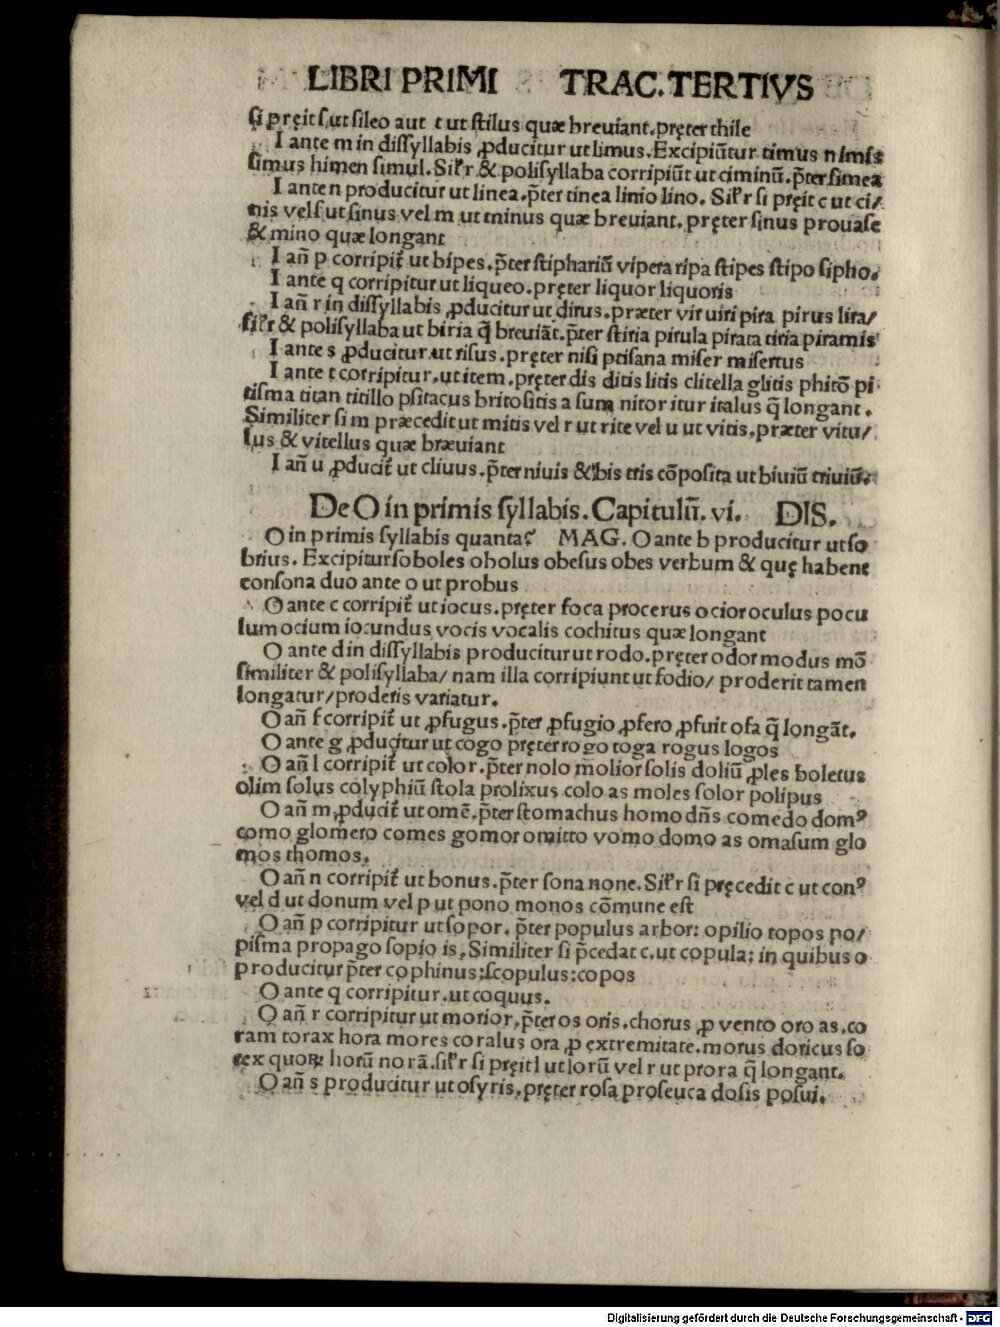 LIBRI PRIMI TRAC. TERTIVS
si pręit ſ, ut ſileo aut t ut ſtilus quæ breuiant. pręter thile
I ante m in diſſyllabis ꝓducitur ut limus. Excipiũtur timus nimis
ſimus himen ſimul. Siłr & poliſyllaba corripiũt ut ciminũ. p̃ter ſimea
I ante n producitur ut linea. p̃ter tinea linio lino. Siłr ſi pręit c ut ci/
nis vel ſ ut ſinus vel m ut minus quæ breuiant. pręter ſinus pro uaſe
& mino quæ longant
I añ p corripit̃ ut bipes. p̃ter ſtiphariũ vipera ripa ſtipes ſtipo ſipho.
I ante q corripitur ut liqueo. pręter liquor liquoris
I añ r in diſſyllabis ꝓducitur ut dirus. præter vir uiri pira pirus lira/
ſiłr & poliſyllaba ut biria q̃ breuiãt. p̃ter ſtiria pirula pirata tiria piramis
I ante s ꝓducitur ut riſus. pręter niſi ptiſana miſer miſertus
I ante t corripitur, ut item. pręter dis ditis litis clitella glitis phitõ pi
tiſma titan titillo pſitacus brito ſitis a ſum nitor itur italus q̃ longant.
Similiter ſi m præcedit ut mitis vel r ut rite vel u ut vitis. præter vitu/
lus & vitellus quæ bræuiant
I añ u ꝓducit̃ ut cliuus. p̃ter niuis & bis tris cõpoſita ut biuiũ triuiũ.
De O in primis ſyllabis. Capitulũ. vi. DIS.
O in primis ſyllabis quanta? MAG. O ante b producitur ut ſo
brius. Excipitur ſoboles obolus obeſus obes verbum & quę habent
conſona duo ante o ut probus
O ante c corripit̃ ut iocus. pręter foca procerus ocior oculus pocu
lum ocium iocundus vocis vocalis cochitus quæ longant
O ante d in diſſyllabis producitur ut rodo. pręter odor modus mõ
ſimiliter & poliſyllaba/ nam illa corripiunt ut fodio/ proderit tamen
longatur/ proderis variatur.
O añ f corripit̃ ut ꝓfugus. p̃ter ꝓfugio ꝓfero ꝓfuit ofa q̃ longãt.
O ante g ꝓducitur ut cogo pręter rogo toga rogus logos
O añ l corripit̃ ut color. p̃ter nolo molior ſolis doliũ ꝓles boletus
olim ſolus colyphiũ ſtola prolixus colo as moles ſolor polipus
O añ m ꝓducit̃ ut omẽ. p̃ter ſtomachus homo dñs comedo domꝰ
como glomero comes gomor omitto vomo domo as omaſum glo
mos thomos.
O añ n corripit̃ ut bonus. p̃ter ſona none. Siłr ſi pręcedit c ut conꝰ
vel d ut donum vel p ut pono monos cõmune eſt
O añ p corripitur ut ſopor. p̃ter populus arbor: opilio topos po/
piſma propago ſopio is, Similiter ſi p̃cedat c, ut copula: in quibus o
producitur p̃ter cophinus: ſcopulus: copos
O ante q corripitur. ut coquus.
O añ r corripitur ut morior, p̃ter os oris. chorus ꝓ vento oro as. co
ram torax hora mores coralus ora ꝓ extremitate. morus doricus ſo
rex quoꝝ horũ norã. ſiłr ſi pręit l ut lorũ vel r ut prora q̃ longant.
O añ s producitur ut oſyris. pręter roſa proſeuca doſis poſui.
Digitalisierung gefördert durch die Deutsche Forschungsgemeinschaft - DFG